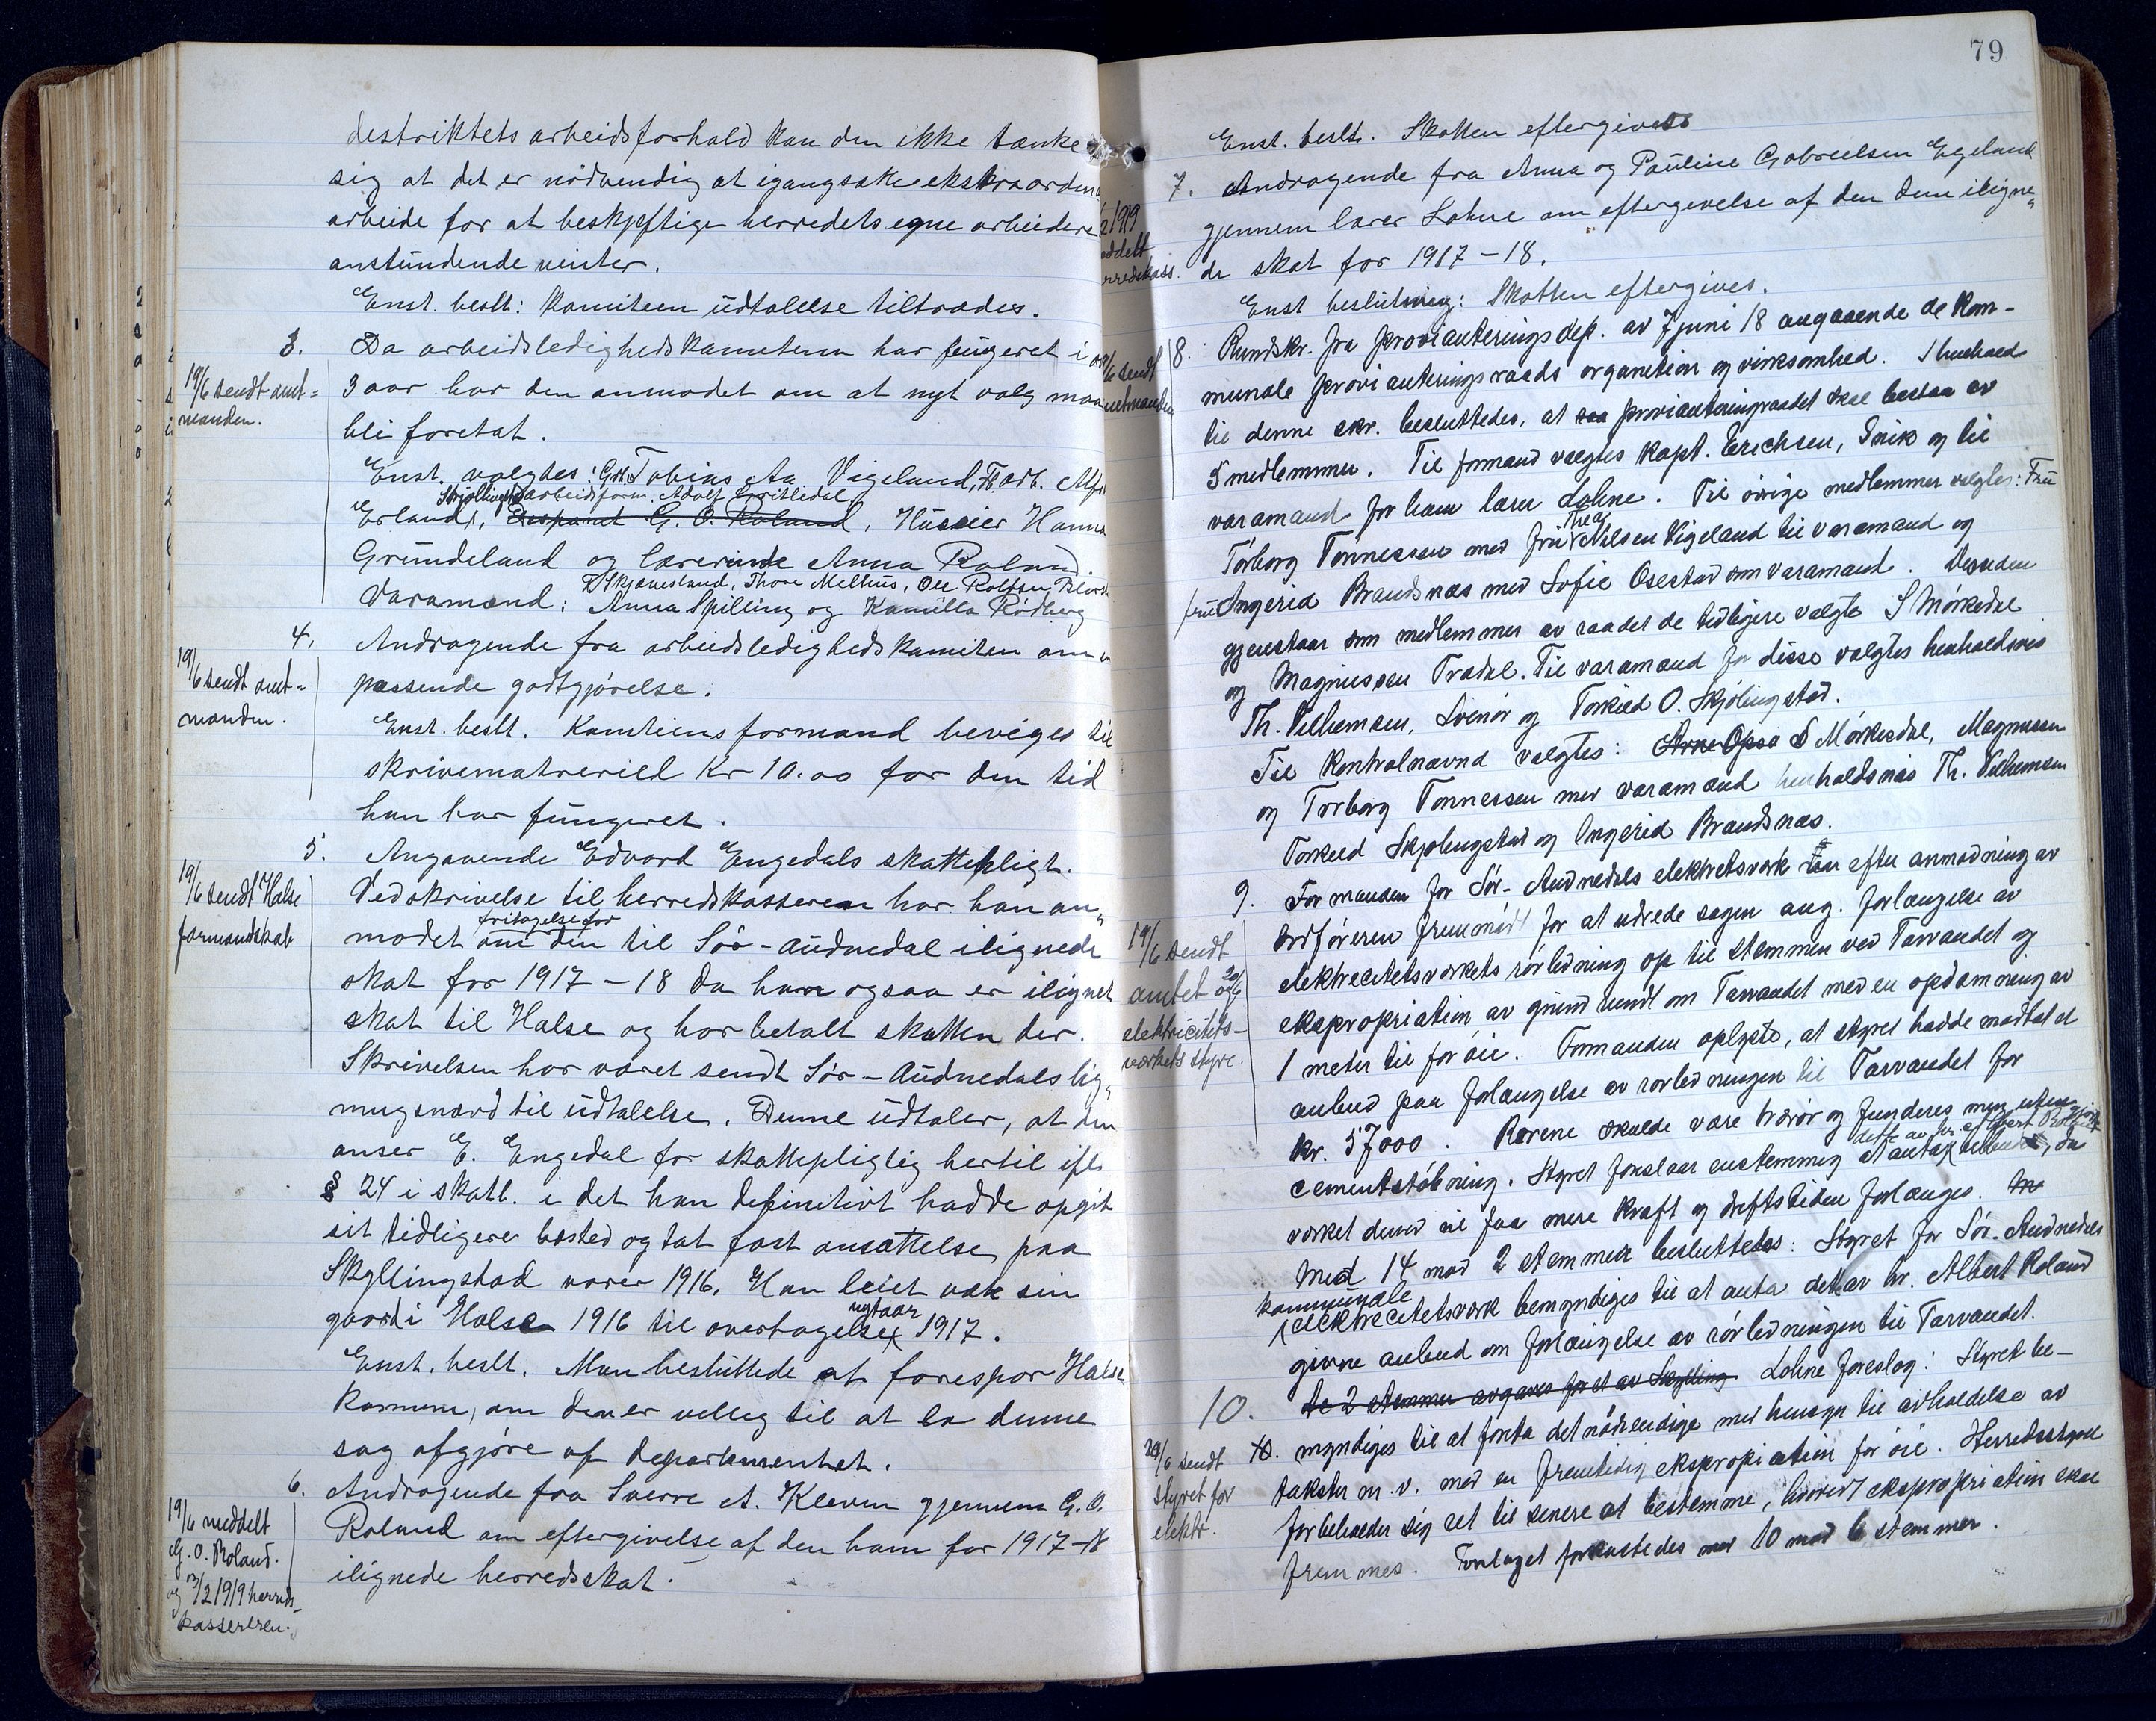 destriktets arbeidsforhald kan den ikke tænke
sig at det er nödvendig at igangsætte ekstraordinæ
arbeide for at beskjeftige herredets egne arbeidere
anstundende vinter.
Enst. beslt: Kamiteen udtalelse tiltrædes.
3. Da arbeidsledighedskamiteen har fungeret i
19/6 sendt amt=
manden.
3 aar har den anmodet om at nyt valg maa
bli foretat.
Enst. valgtes: Grd. Tobias Aa Vigeland, Fb.arb. Alfr
Skjollingst arbeidsform. Adolf
Erland, Disponent G. O. Roland, Huseier Hanna
Gründeland og lærerinde Anna Roland.
Skjævesland, Thore Melhus, Ole Rolfsen
Varamænd: Anna Spilling og Kamilla Rödberg
4. Andragende fra arbeidsledighedskamiten om
19/6 sendt amt=
manden.
passende godtgjörelse.
Enst. beslt. Kamiteens formand beviges til
skrivematreriell Kr 10.00 for den tid
han har fungeret.
5. Angaaende Edvard Engedals skattepligt.
19/6 sendt Halse
formandskab
Ved skrivelse til herredskasseren har han an„
fritagelse for
modet om den til Sör-Audnedal ilignede
skat for 1917-18 da han ogsaa er ilignet
skat til Halse og har betalt skatten der.
Skrivelsen har været sendt Sör-Audnedals lig„
nignsnævd til udtalelse. Denne udtaler, at den
anser E. Engedal for skattepligtig hertil ifl.
§ 24 i skattl. i det han definitivt hadde opgit
sit tidligere bosted og tat fast ansættelse paa
Skyllingstad vaaren 1916. Han leiet væk sin
nytaar
gaard i Halse 1916 til overtagelse 1917.
Enst. beslt. Man besluttede at forespör Halse
Komune, om den er vellig til at la denne
sag afgjöre af Departementet.
6. Andragende fra Sverre A. Kleven gjennem G. O.
19/6 meddelt
G. O. Roland.
og /2 1919 herreds-
kassereren.
Roland om eftergivelse af den ham for 1917-18
ilignede herredsskat.
79
Enst. beslt. Skatten eftergives
7. Andragende fra Anna og Pauline Gabrielsen Egeland
2 1919
meddelt
herredskass.
gjennem lærer Lohne om eftergivelse af den dem iligne„
de skat for 1917-18.
Enst beslutning: Skatten eftergives.
8. Rundskr. fra provianteringsdep. av 7 juni 18 angaaende de kom-
19/6 sendt
amtmanden
munale provianteringsraads organition og virksomhed. I henhold
til denne skr. besluttedes, at proviantringsraadet skal bestaa av
5 medlemmer. Til formand valgtes Kapt. Erichsen, Snik og til
varamand for ham lærer Lohne. Til övrige medlemmer valgtes: Fru
Thea
Torborg Tönnessen med fru Nilsen Vigeland til varamand og
fru Ingerid Brandsnæs med Sofie Osestad som varamand. Desuden
gjenstaar som medlemmer av raadet de tidligere valgte S Mörkedal
og Magnussen Tradal. Til varamænd for disse valgtes henholdsvis
Th. Vilhemsen, Svinör og Torkild O. Skjölingstad.
Til Kontrolnævnd valgtes: Arne Opsa S Mörkesdal, Magnussen
og Torborg Tönnessen med varamænd henholdsvis Th. Vilhemsen
Torkild Skjolingstad og Ingerid Brandsnæs.
9. Formanden for Sör-Audnedals elektrisitetsverk efter anmodning av
19/6 sendt
amtet og 20/6
elektricitets-
værkets styre.
ordföreren fremmödt for at utrede sagen ang. forlængelse av
elektrecitetsverkets rörledning op til stemmen ved Tarvandet og
ekspropriation av grund rundt om Tarvandet med en opdæmning av
1 meter til for öie. Formanden oplyste, at styret hadde mottat et
anbud paa forlængelse av rörledningen til Tarvandet for
kr. 57000. Rörene skulde være trærör og funderes men uten
dette av hr. Albert Roland gjorte
cementstöbning. Styret foreslaar enstemmig at anta anbud, da
verket derved vil faa mere kraft og driftstiden forlænges.
Med 14 mod 2 stemmer besluttedes: Styret for Sör-Audnedals
kommunale
elektrecitetsverk bemyndiges til at anta det av hr. Albert Roland
givne anbud om forlængelse av rörledningen til Tarvandet.
10. De 2 stemmer avgaves for et av Skylling Lohne foreslog: Styret be-
20/6 sendt
styret for
elektr.
10. myndiges til at foreta det nödvendige med hensyn til avholdelse av
takster m.v. med en fremtidig ekspropriation for öie. Herredsstyret
forbeholder sig ret til senere at bestemme, hvorvidt ekspropriation skal
fremmes. Forslaget forkastedes med 10 mod 6 stemmer.